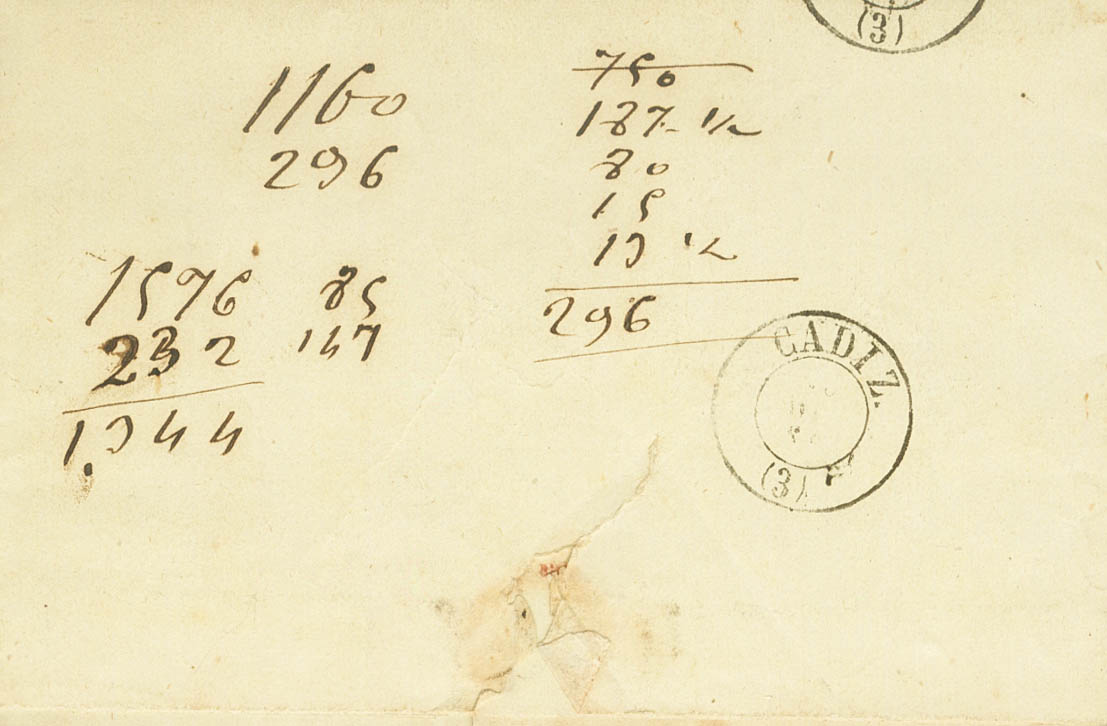 (3)
1160
296
750
187 ½
80
15
13 ½
296
1576 85
232 147
1.344
CADIZ.
(3)